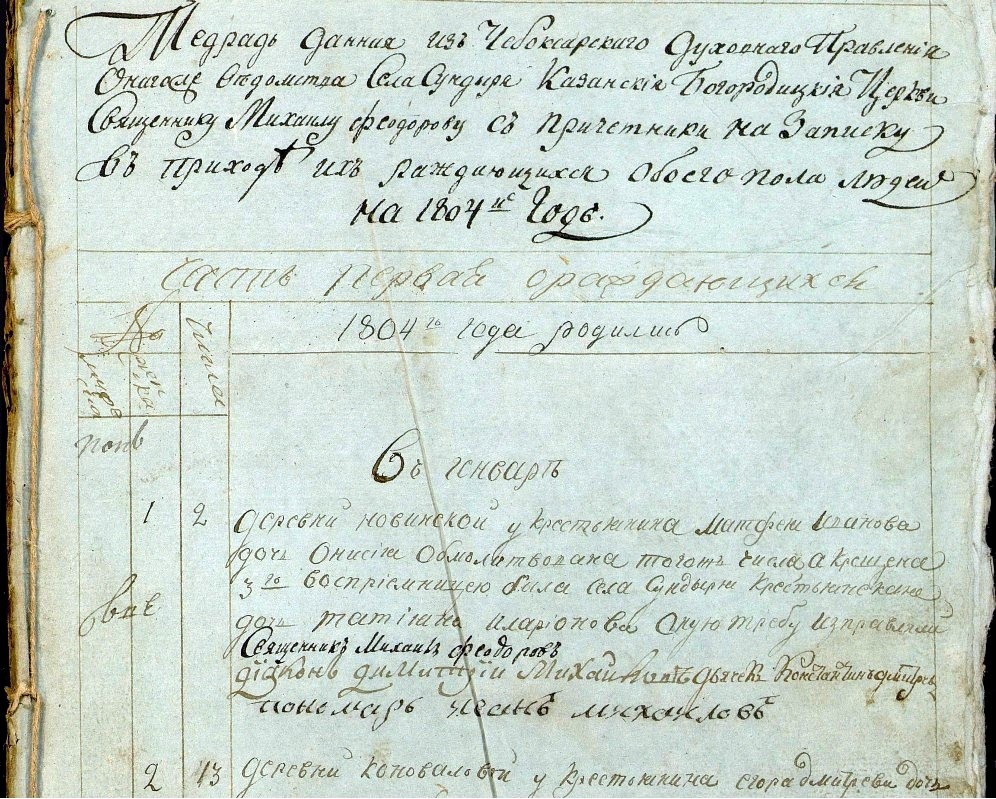 Тетрадь данная изъ Чебоксарскаго Духовнаго Правленія
Онагоже ведомства Села Сундыря Казанскія Богородицкія Церкви
Священнику Михаилу Феодорову съ Причетники на Записку
въ приходѣ ихъ раждающихся обоего пола людей
на 1804й Годъ.
Часть первая ораждающихся
1804го года родились
Числа
Въ генварѣ
1 2 деревни новинской у крестьянина Матфея Иванова
дочь Онисія обмолитвована тогожъ числа а крещена
3го воспріемницею была села Сундыря крестьянская
дочь татіяна иларіонова оную требу исправляли
Священникъ Михаилъ Феодоровъ
діаконъ димитрій Михайловъ дьячекъ Константинъ
пономарь иванъ михаиловъ
2 13 деревни коноваловой у крестьянина егора дмитреева дочь